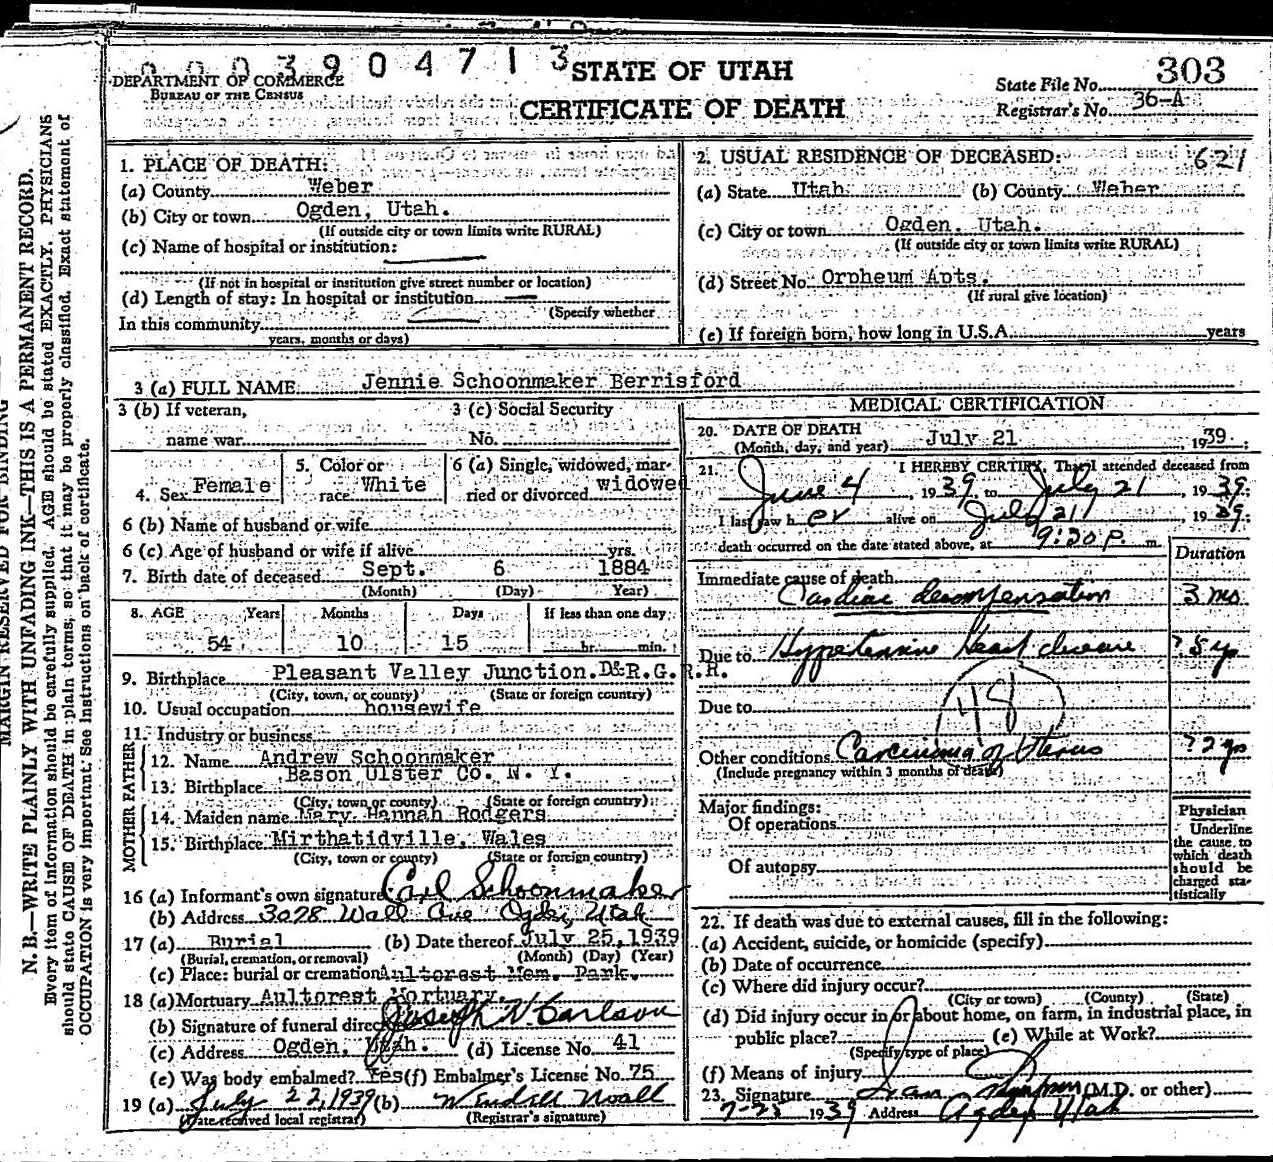 0003904713
STATE OF UTAH
CERTIFICATE OF DEATH
DEPARTMENT OF COMMERCE
BUREAU OF THE CENSUS
State File No. 303
Registrar's No. 36-A
MARGIN RESERVED FOR BINDING
N. B.—WRITE PLAINLY WITH UNFADING INK—THIS IS A PERMANENT RECORD.
Every item of information should be carefully supplied. AGE should be stated EXACTLY. PHYSICIANS
should state CAUSE OF DEATH in plain terms, so that it may be properly classified. Exact statement of
OCCUPATION is very important. See instructions on back of certificate.
1. PLACE OF DEATH:
(a) County Weber
(b) City or town Ogden, Utah.
(If outside city or town limits write RURAL)
(c) Name of hospital or institution:
(If not in hospital or institution give street number or location)
(d) Length of stay: In hospital or institution
(Specify whether
In this community
years, months or days)
2. USUAL RESIDENCE OF DECEASED: 621
(a) State Utah (b) County Weber
(c) City or town Ogden, Utah.
(If outside city or town limits write RURAL)
(d) Street No. Orpheum Apts.
(If rural give location)
(e) If foreign born, how long in U.S.A. years
3 (a) FULL NAME Jennie Schoonmaker Berrisford
3 (b) If veteran,
name war
3 (c) Social Security
No.
4. Sex Female
5. Color or
race White
6 (a) Single, widowed, mar-
ried or divorced widowed
6 (b) Name of husband or wife
6 (c) Age of husband or wife if alive yrs.
7. Birth date of deceased Sept. 6 1884
(Month) (Day) Year)
8. AGE Years Months Days If less than one day
54 10 15 hr. min.
9. Birthplace Pleasant Valley Junction. D&R.G. R.R.
(City, town, or county) (State or foreign country)
10. Usual occupation housewife
11. Industry or business
FATHER
12. Name Andrew Schoonmaker
13. Birthplace Bason Ulster Co. N. Y.
(City, town or county) (State or foreign country)
MOTHER
14. Maiden name Mary Hannah Rodgers
15. Birthplace Mirthatidville, Wales
(City, town or county) (State or foreign country)
16 (a) Informant's own signature Carl Schoonmaker
(b) Address 3028 Wall Ave Ogden, Utah
17 (a) Burial (b) Date thereof July 25, 1939
(Burial, cremation, or removal) (Month) (Day) (Year)
(c) Place: burial or cremation Aultorest Mem. Park.
18 (a) Mortuary Aultorest Mortuary.
(b) Signature of funeral director Joseph W. Carlson
(c) Address Ogden, Utah. (d) License No. 41
(e) Was body embalmed? Yes (f) Embalmer's License No. 75
19 (a) July 22, 1939 (b) Wendell Noall
(Date received local registrar) (Registrar's signature)
MEDICAL CERTIFICATION
20. DATE OF DEATH
(Month, day, and year) July 21 1939.
21. I HEREBY CERTIFY, That I attended deceased from
June 4, 1939, to July 21, 1939;
I last saw her alive on July 21, 1939;
death occurred on the date stated above, at 9:20 P. m.
Duration
Immediate cause of death
Cardiac decompensation 3 mo
Due to Hypertensive Heart disease ? 5 yr
Due to
48
Other conditions Carcinoma of Uterus ? 2 yrs
(Include pregnancy within 3 months of death)
Major findings:
Of operations
Of autopsy
Physician
Underline
the cause to
which death
should be
charged sta-
tistically
22. If death was due to external causes, fill in the following:
(a) Accident, suicide, or homicide (specify)
(b) Date of occurrence
(c) Where did injury occur?
(City or town) (County) (State)
(d) Did injury occur in or about home, on farm, in industrial place, in
public place? (e) While at Work?
(Specify type of place)
(f) Means of injury
23. Signature (M.D. or other)
1939 Address Ogden Utah